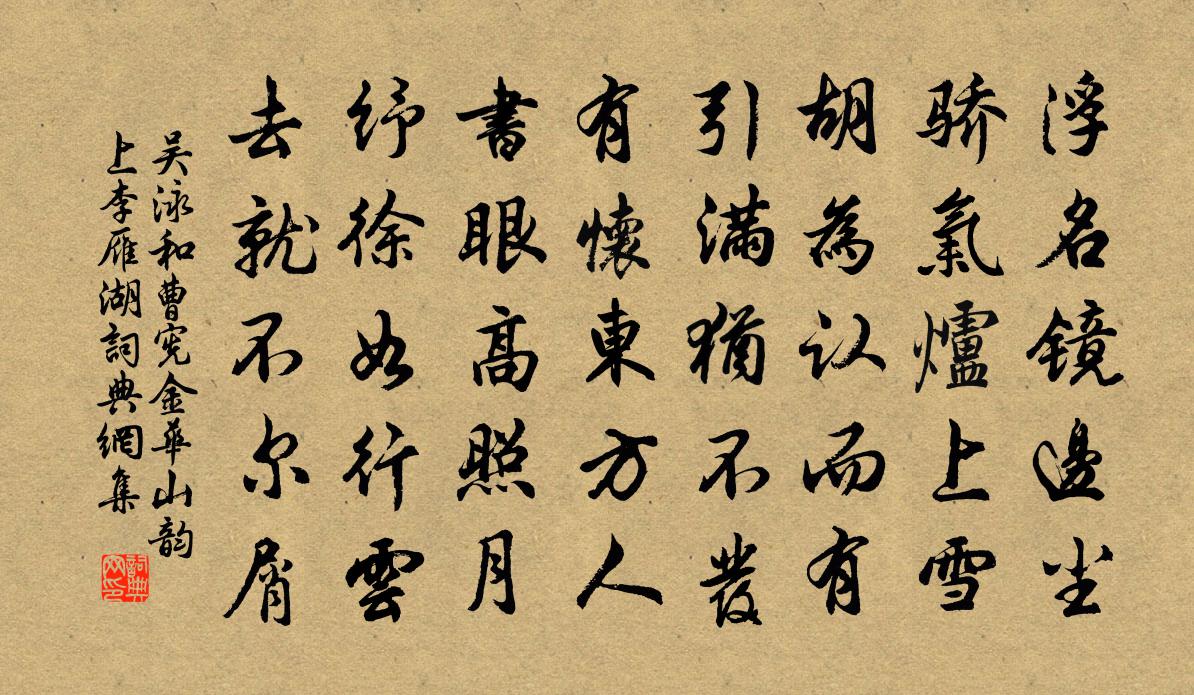 浮名镜邊尘
骄氣爐上雪
胡為认而有
引滿猶不發
有懷東方人
書眼高照月
纾徐如行雲
去就不尔屑
吴泳和曹宪金華山韵
上李雁湖詞典網集
詞典网印